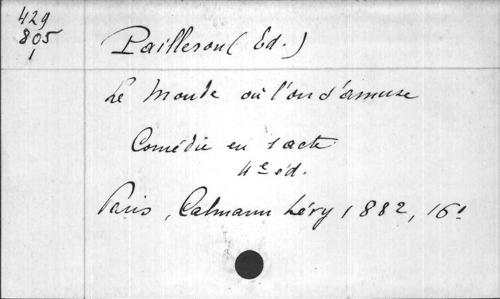 429
805
1
Pailleron (Ed.)
Le Monde où l'on s'amuse
Comédie en 1 acte
4e éd.
Paris, Calmann Lévy 1882, 16°